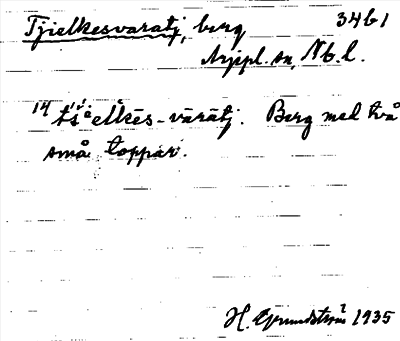 Tjielkesvaratj, berg 34b1
Arjepl. sn, Nb. l.
14 tśi̯elkēs-vārātj. Berg med två
små toppar.
H. Grundström 1935